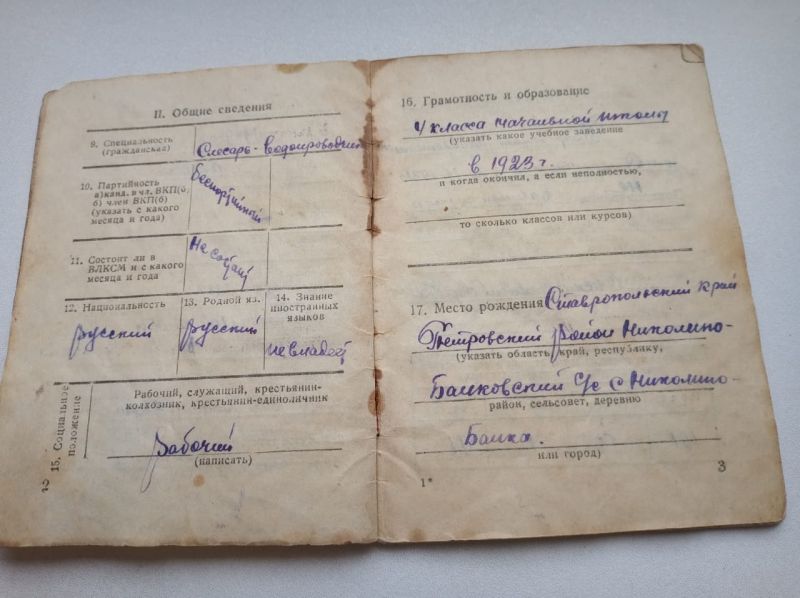 II. Общие сведения
9. Специальность
(гражданская)
Слесарь-водопроводчик
10. Партийность
а) канд. в чл. ВКП(б),
б) член ВКП(б)
(указать с какого
месяца и года)
Беспартийный
11. Состоит ли в
ВЛКСМ и с какого
месяца и года
Не состоит
12. Национальность
русский
13. Родной яз.
русский
14. Знание
иностранных
языков
не владеет
15. Социальное
положение
Рабочий, служащий, крестьянин-
колхозник, крестьянин-единоличник
Рабочий
(написать)
2
16. Грамотность и образование
4 класса начальной школы
(указать какое учебное заведение
в 1923 г.
и когда окончил, а если неполностью,
то сколько классов или курсов)
17. Место рождения Ставропольский край
Петровский район Николино-
(указать область, край, республику,
Балковский с/с с Николино-
район, сельсовет, деревню
Балка.
или город)
1*
3